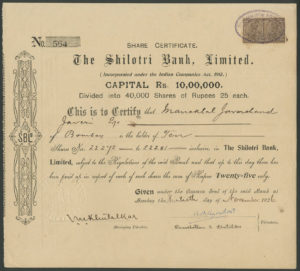 SHARE CERTIFICATE.
No. 554
The Shilotri Bank, Limited.
(Incorporated under the Indian Companies Act, 1913.)
CAPITAL Rs. 10,00,000.
Divided into 40,000 Shares of Rupees 25 each.
This is to Certify that
Javeri Esqr
of Bombay is the holder of Ten
Share Nos. 22272 to 22281 inclusive in The Shilotri Bank,
Limited, subject to the Regulations of the said Bank and that up to this day there has been
paid up in respect of each of such shares the sum of Rupees Twenty-five only.
Given under the Common Seal of the said Bank at
Bombay the day of November 19
SBL